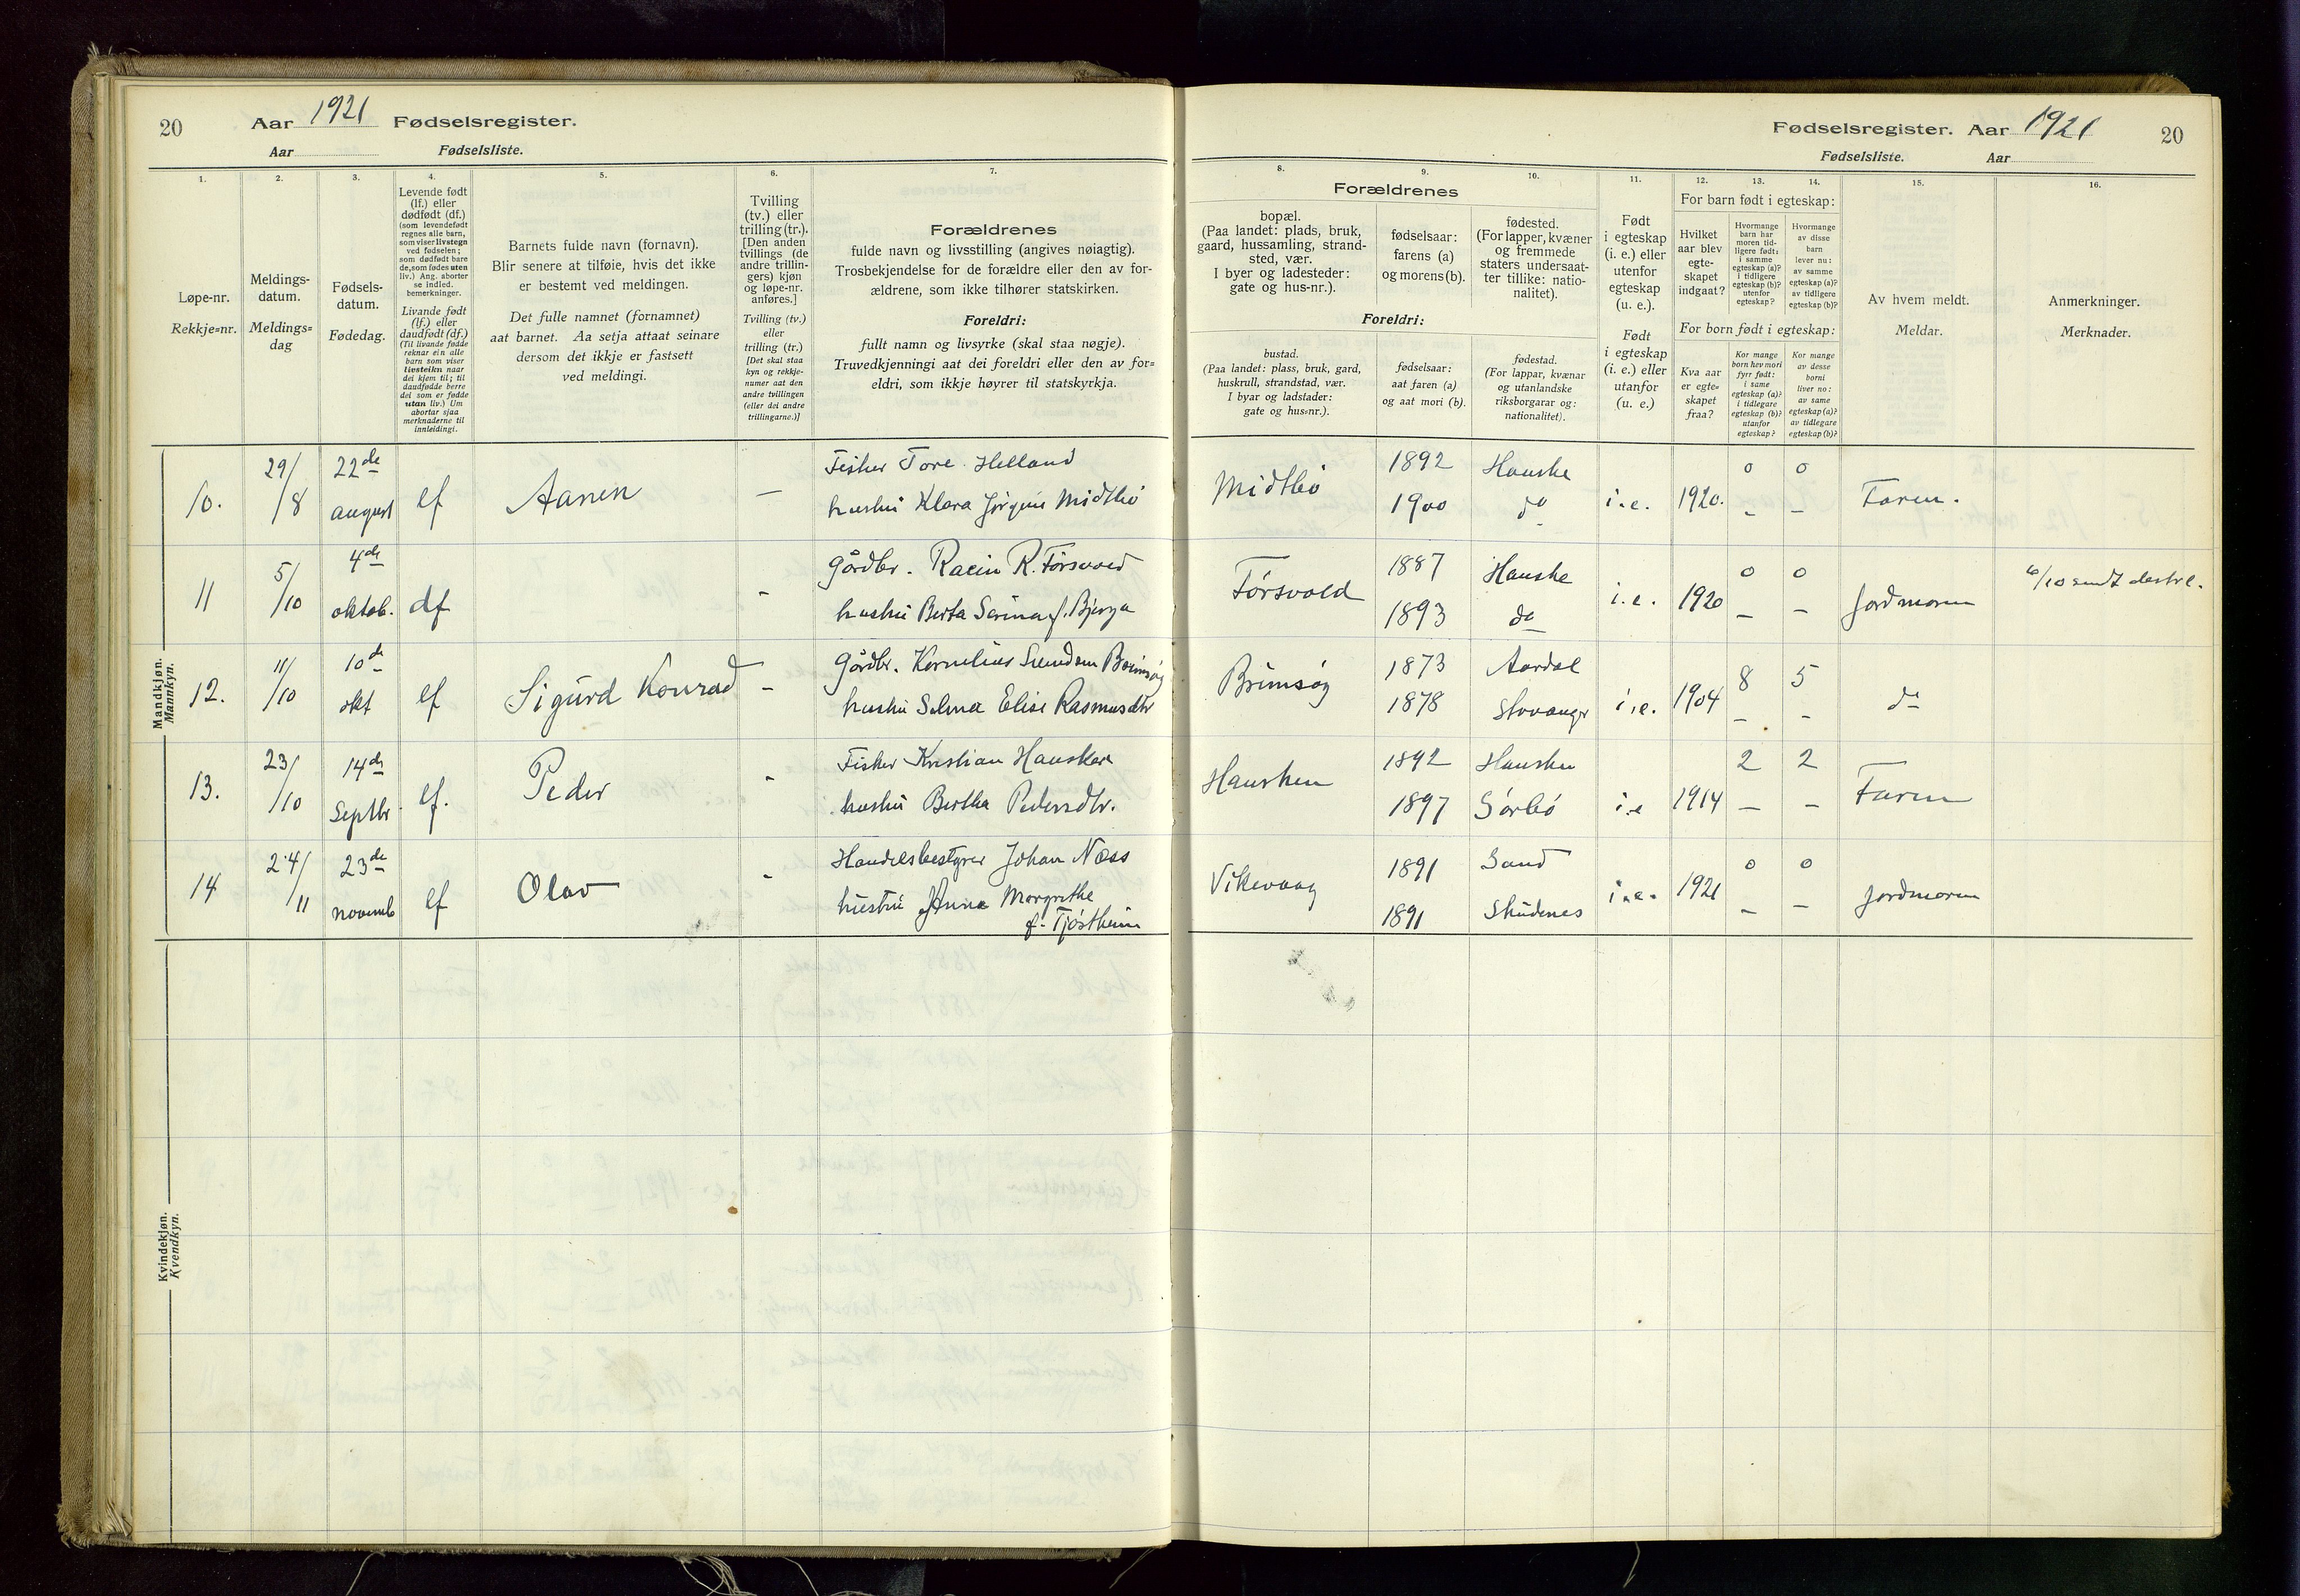 20 Aar 1921 Fødselsregister.
Aar Fødselsliste.
Fødselsregister. Aar 1921 20
Fødselsliste. Aar
1. 2. 3. 4. 5. 6. 7.
Løpe-nr.
Rekkje=nr.
Meldings-
datum.
Meldings=
dag
Fødsels-
datum.
Fødedag.
Levende født
(lf.) eller
dødfødt (df.)
(som levendefødt
regnes alle barn,
som viser livstegn
ved fødselen;
som dødfødt bare
de, som fødes uten
liv.) Ang. aborter
se indled.
bemerkninger.
Livande født
(lf.) eller
daudfødt (df.)
(Til livande fødde
reknar ein alle
barn som viser
livsteikn naar
dei kjem til; til
daudfødde berre
dei som er fødde
utan liv.) Um
abortar sjaa
merknaderne til
innleidingi.
Barnets fulde navn (fornavn).
Blir senere at tilføie, hvis det ikke
er bestemt ved meldingen.
Det fulle namnet (fornamnet)
aat barnet. Aa setja attaat seinare
dersom det ikkje er fastsett
ved meldingi.
Tvilling
(tv.) eller
trilling (tr.).
[Den anden
tvillings (de
andre trillin-
gers) kjøn
og løpe-nr.
anføres.]
Tvilling (tv.)
eller
trilling (tr.)
[Det skal staa
kyn og rekkje-
numer aat den
andre tvillingen
(eller dei andre
trillingarne.)]
Forældrenes
fulde navn og livsstilling (angives nøiagtig).
Trosbekjendelse for de forældre eller den av for-
ældrene, som ikke tilhører statskirken.
Foreldri:
fullt namn og livsyrke (skal staa nøgje).
Truvedkjenningi aat dei foreldri eller den av for=
eldri, som ikkje høyrer til statskyrkja.
8. 9. 10. 11. 12. 13. 14. 15. 16.
Forældrenes
bopæl.
(Paa landet: plads, bruk,
gaard, hussamling, strand-
sted, vær.
I byer og ladesteder:
gate og hus-nr.).
fødselsaar:
farens (a)
og morens (b).
fødested.
(For lapper, kvæner
og fremmede
staters undersaat-
ter tillike: natio-
nalitet).
Foreldri:
bustad.
(Paa landet: plass, bruk, gard,
huskrull, strandstad, vær.
I byar og ladstader:
gate og hus=nr.).
fødselsaar:
aat faren (a)
og aat mori (b).
fødestad.
(For lappar, kvænar
og utanlandske
riksborgarar og:
nationalitet).
Født
i egteskap
(i. e.) eller
utenfor
egteskap
(u. e.).
Født
i egteskap
(i. e.) eller
utanfor
(u. e.)
For barn født i egteskap:
Hvilket
aar blev
egte-
skapet
indgaat?
Hvormange
barn har
moren tid-
ligere født:
i samme
egteskap (a)?
i tidligere
egteskap (b)?
utenfor
egteskap?
Hvormange
av disse
barn
lever nu:
av samme
egteskap (a)?
av tidligere
egteskap (b)?
For born født i egteskap:
Kva aar
er egte=
skapet
fraa?
Kor mange
born hev mori
fyrr født:
i same
egteskap (a)?
i tidlegare
egteskap (b)?
utanfor
egteskap?
Kor mange
av desse
borni
liver no:
av same
egteskap (a)?
av tidlegare
egteskap (b)?
Av hvem meldt.
Meldar.
Anmerkninger.
Merknader.
Mandkjøn.
Mannkyn.
10. 29/8 22de august lf Aanen – Fisker Tore Helland
hustru Klara Jörgine Midtbö
Midtbö 1892 Hauske 0 0
1900 do i.e. 1920. – – Faren.
11 5/10 4de oktob. df - Gårdbr. R. Försvold
hustru Berta Serina f. Bjerga
Försvold 1887 Hauske 0 0
1893 do i.e. 1920 – – Jordmoren
6/10 sendt
12. 11/10 10de okt lf Sigurd Konrad – Gårdbr. Kornelius Brimsøy
hustru Selma Elise Rasmusdtr
Brimsøy 1873 Aardal 8 5
1878 Stavanger i.e. 1904 – – do
13. 23/10 14de Septbr. lf. Peder - Fisker Kristian Hausken
hustru Bertha Pedersdtr.
Hausken 1892 Hausken 2 2
1897 Sörbö i.e 1914 – – Faren
14 24/11 23de novemb lf Olav - Handelsbestyrer Johan Næss
hustru Anna Margrethe
f. Tjöstheim
Vikevaag 1891 Sand 0 0
1891 Skudenes i.e. 1921 – – Jordmoren
Kvindekjøn.
Kvendkyn.